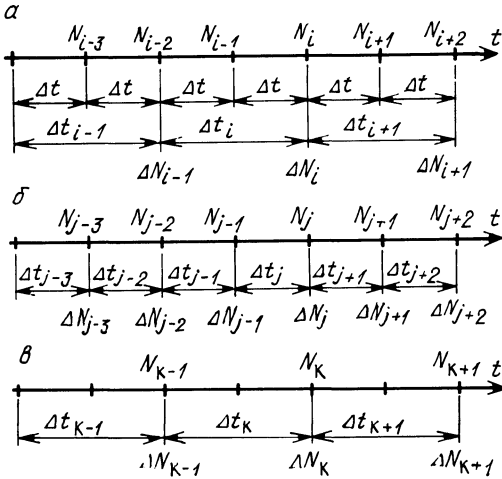 а
N_{i-3} N_{i-2} N_{i-1} N_i N_{i+1} N_{i+2} t
Δt Δt Δt Δt Δt Δt
Δt_{i-1} Δt_i Δt_{i+1}
ΔN_{i-1} ΔN_i ΔN_{i+1}
б
N_{j-3} N_{j-2} N_{j-1} N_j N_{j+1} N_{j+2} t
Δt_{j-3} Δt_{j-2} Δt_{j-1} Δt_j Δt_{j+1} Δt_{j+2}
ΔN_{j-3} ΔN_{j-2} ΔN_{j-1} ΔN_j ΔN_{j+1} ΔN_{j+2}
в
N_{К-1} N_К N_{К+1} t
Δt_{К-1} Δt_К Δt_{К+1}
ΔN_{К-1} ΔN_К ΔN_{К+1}